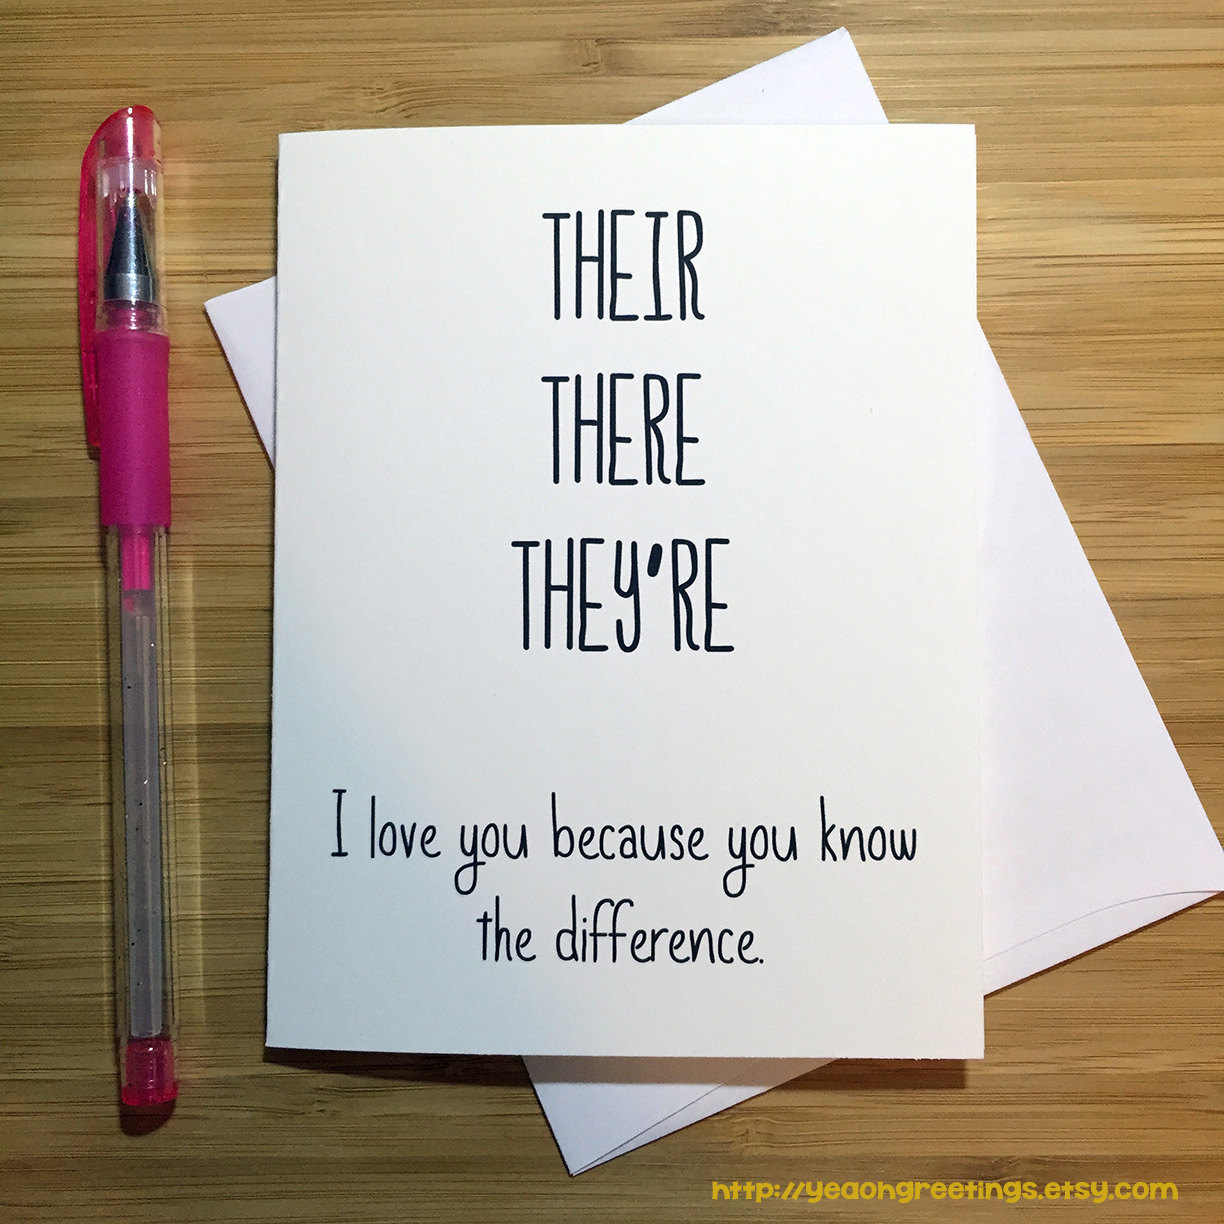 THEIR
THERE
THEY'RE
I love you because you know
the difference.
http://yeaohgreetings.etsy.com